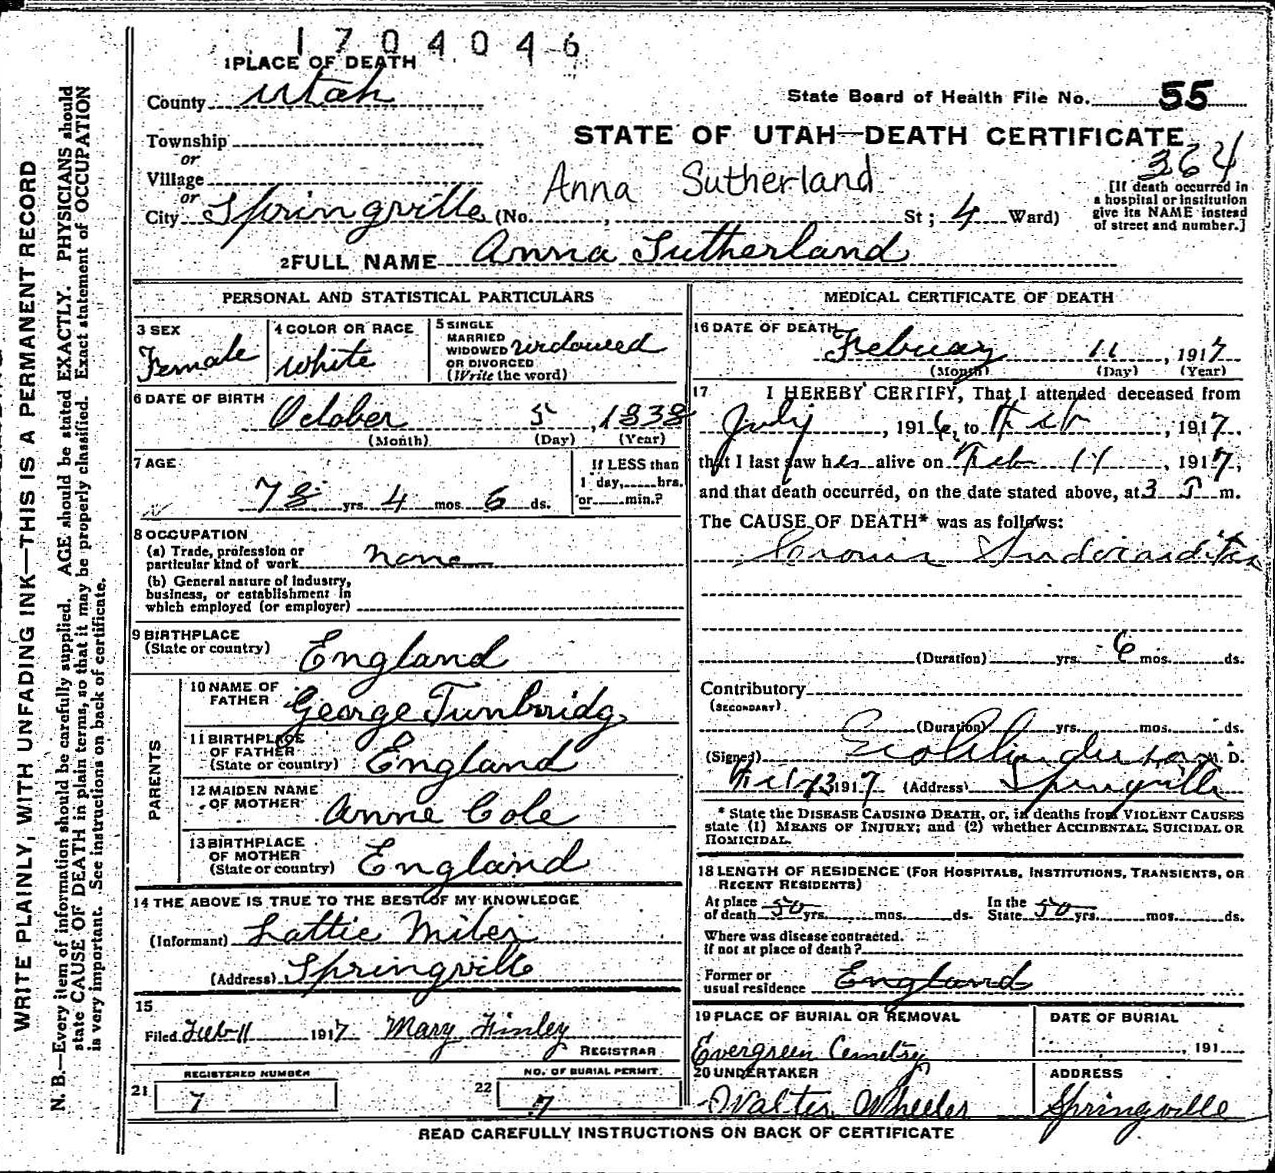 1704046
1 PLACE OF DEATH
County Utah
State Board of Health File No. 55
Township
STATE OF UTAH—DEATH CERTIFICATE
or
364
Village
Anna Sutherland
or
City Springville (No. , St; 4 Ward)
[If death occurred in
a hospital or institution
give its NAME instead
of street and number.]
2 FULL NAME Anna Sutherland
PERSONAL AND STATISTICAL PARTICULARS
3 SEX
Female
4 COLOR OR RACE
White
5 SINGLE
MARRIED
WIDOWED widowed
OR DIVORCED
(Write the word)
6 DATE OF BIRTH
October 5, 1838
(Month) (Day) (Year)
7 AGE
78 yrs. 4 mos. 6 ds.
If LESS than
1 day, hrs.
or min.?
8 OCCUPATION
(a) Trade, profession or
particular kind of work none
(b) General nature of industry,
business, or establishment in
which employed (or employer)
9 BIRTHPLACE
(State or country) England
PARENTS
10 NAME OF
FATHER George Tunbridg
11 BIRTHPLACE
OF FATHER
(State or country) England
12 MAIDEN NAME
OF MOTHER Anne Cole
13 BIRTHPLACE
OF MOTHER
(State or country) England
14 THE ABOVE IS TRUE TO THE BEST OF MY KNOWLEDGE
(Informant) Lattie
(Address) Springville
15
Filed Feb 11 1917 Mary Finley
REGISTRAR
REGISTERED NUMBER
21 7
NO. OF BURIAL PERMIT.
22 7
MEDICAL CERTIFICATE OF DEATH
16 DATE OF DEATH
Februay 11, 1917
(Month) (Day) (Year)
17 I HEREBY CERTIFY, That I attended deceased from
July, 1916, to Feb, 1917,
that I last saw her alive on Feb 11, 1917,
and that death occurred, on the date stated above, at 3 5 m.
The CAUSE OF DEATH* was as follows:
(Duration) yrs. 6 mos. ds.
Contributory
(SECONDARY)
(Duration) yrs. mos. ds.
(Signed) Anderson M. D.
1917 (Address) Springville
* State the DISEASE CAUSING DEATH, or, in deaths from VIOLENT CAUSES
state (1) MEANS OF INJURY; and (2) whether ACCIDENTAL, SUICIDAL OR
HOMICIDAL.
18 LENGTH OF RESIDENCE (FOR HOSPITALS, INSTITUTIONS, TRANSIENTS, OR
RECENT RESIDENTS)
At place
of death 50 yrs. mos. ds.
In the
State 50 yrs. mos. ds.
Where was disease contracted.
if not at place of death?
Former or
usual residence England
19 PLACE OF BURIAL OR REMOVAL
Evergreen Cemetry
DATE OF BURIAL
, 191
20 UNDERTAKER
Walter Wheeler
ADDRESS
Springville
READ CAREFULLY INSTRUCTIONS ON BACK OF CERTIFICATE
WRITE PLAINLY, WITH UNFADING INK—THIS IS A PERMANENT RECORD
N. B.—Every item of information should be carefully supplied. AGE should be stated EXACTLY. PHYSICIANS should
state CAUSE OF DEATH in plain terms, so that it may be properly classified. Exact statement of OCCUPATION
is very important. See instructions on back of certificate.